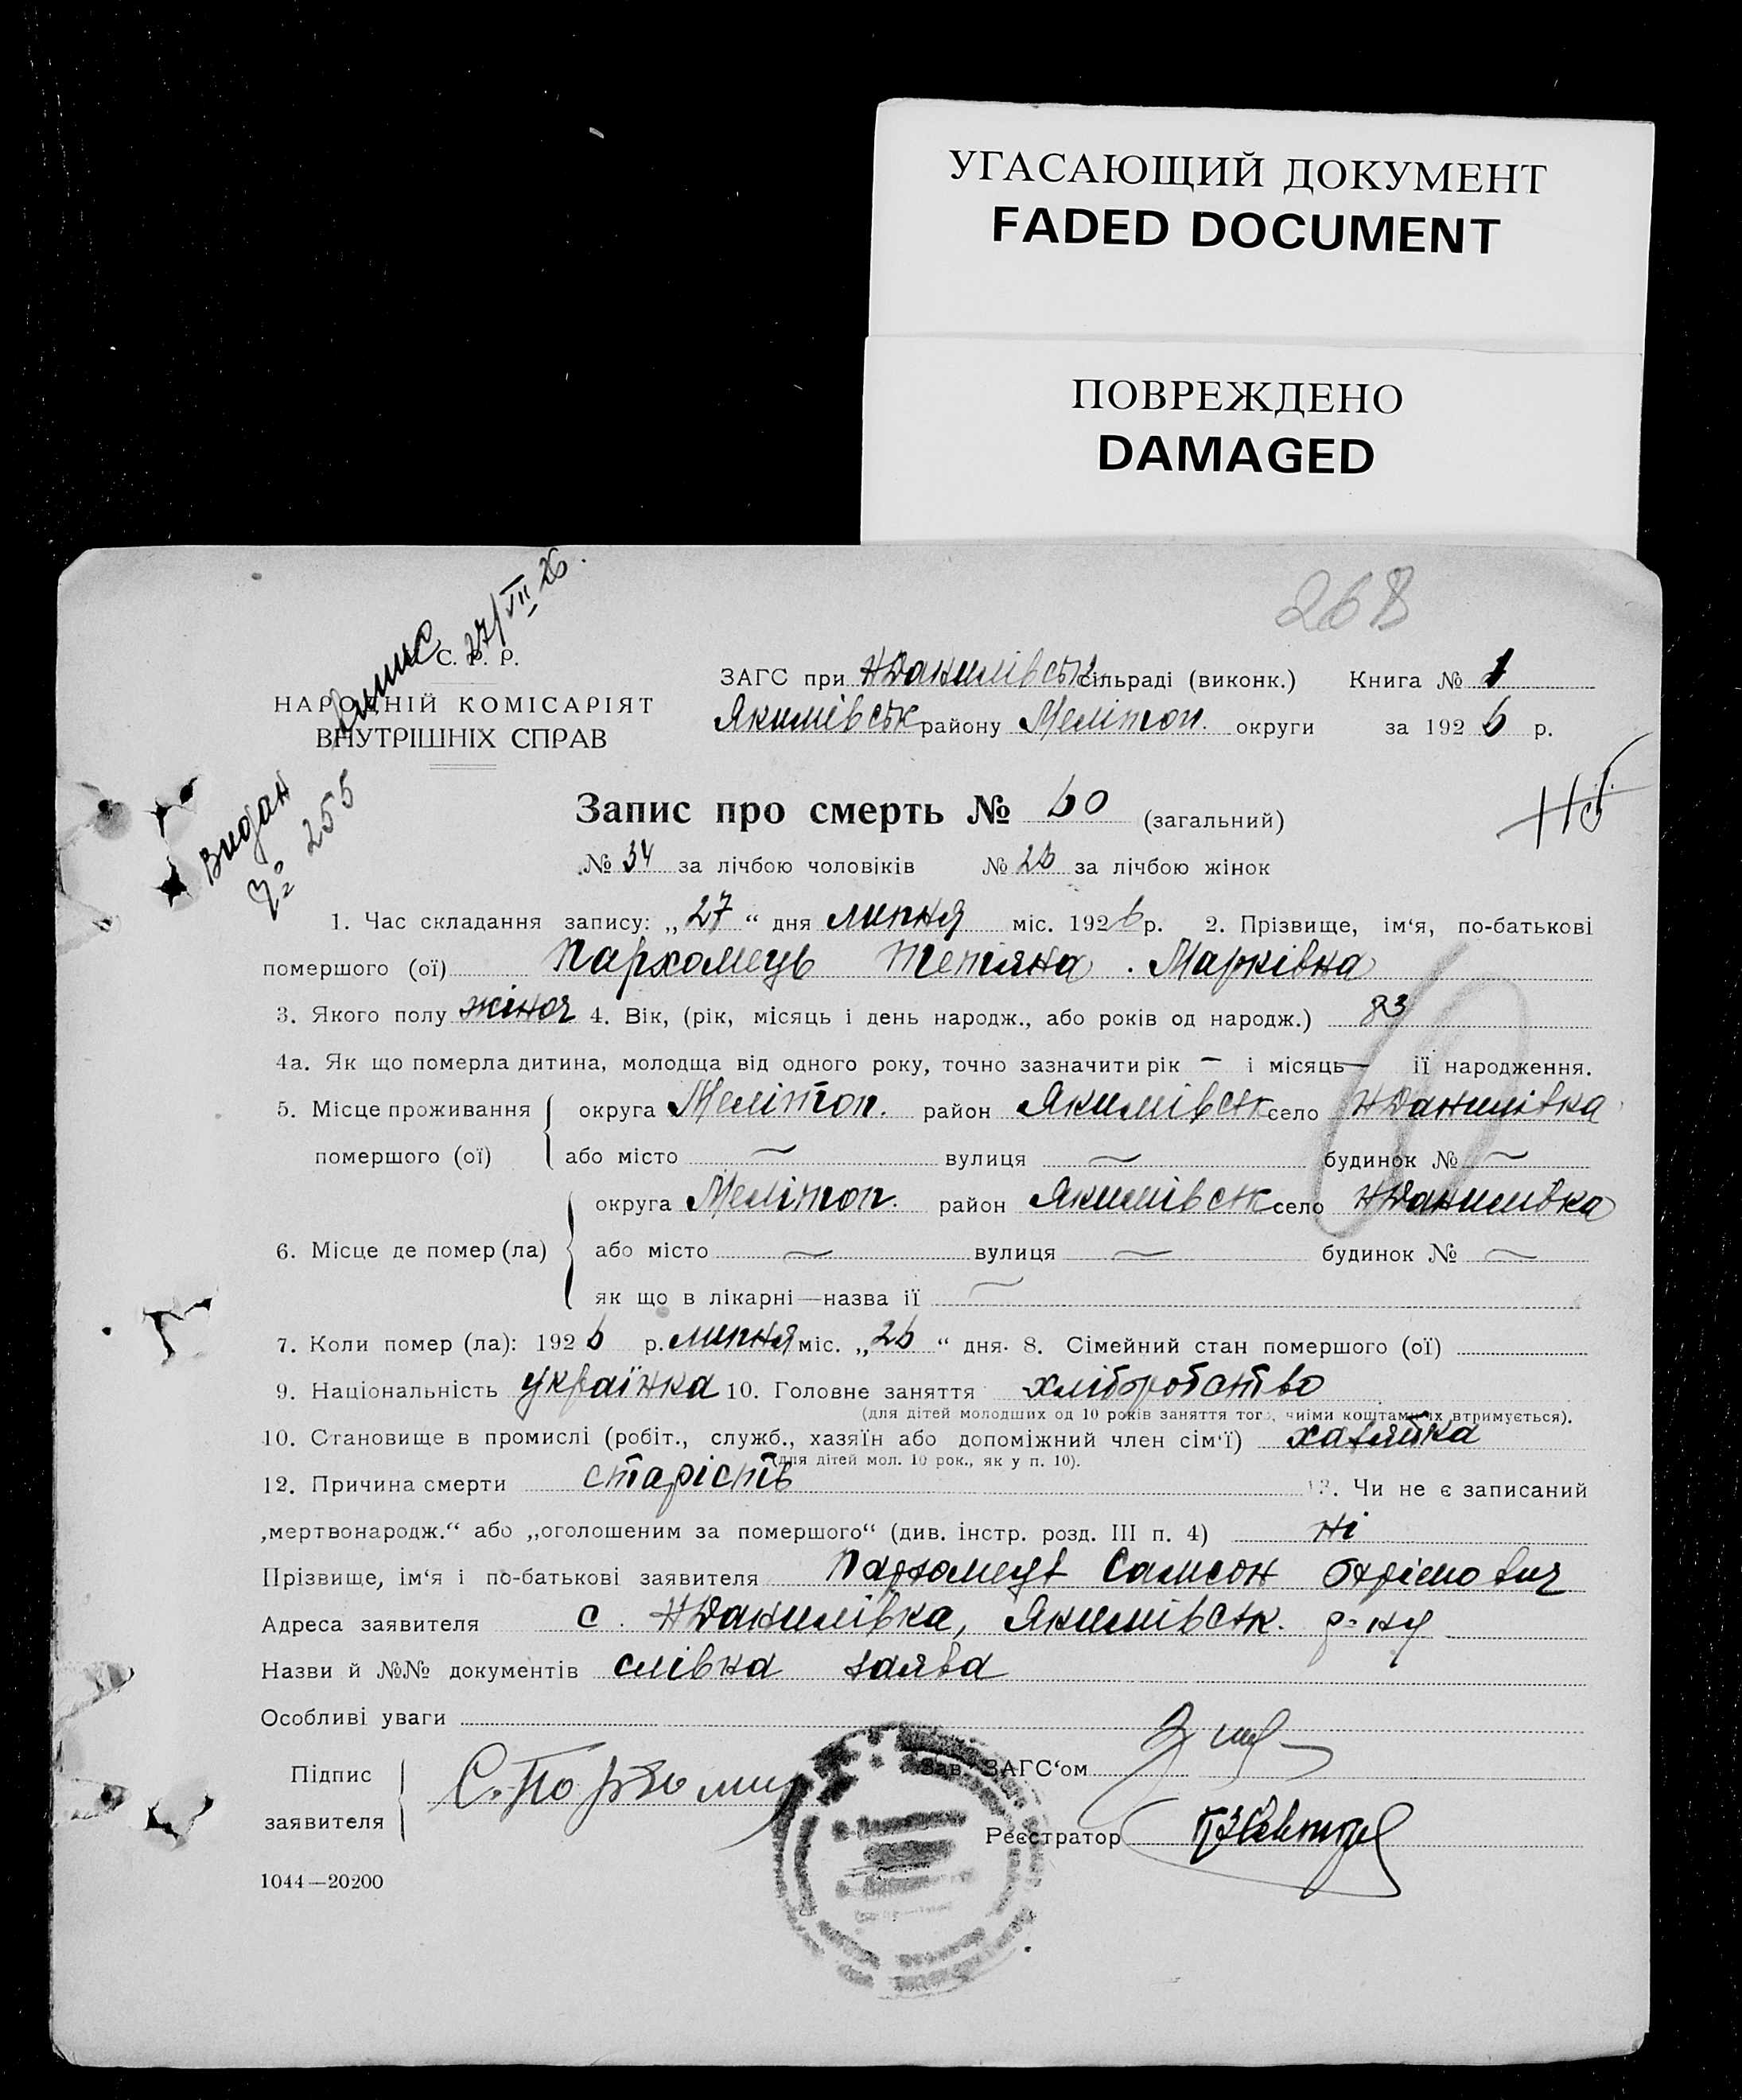 УГАСАЮЩИЙ ДОКУМЕНТ
FADED DOCUMENT
ПОВРЕЖДЕНО
DAMAGED
268
27/VII 26.
С. Р. Р.
НАРОДНІЙ КОМІСАРІЯТ
ВНУТРІШНІХ СПРАВ
Видан
255
ЗАГС при НДанилівськ сільраді (виконк.) Книга № 1
Якимівськ району Мелітоп. округи за 1926 р.
Запис про смерть № 60 (загальний)
№ 34 за лічбою чоловіків № 26 за лічбою жінок
1. Час складання запису: „27“ дня липня міс. 1926 р. 2. Прізвище, ім‘я, по-батькові
помершого (ої) Пархомець Тетяна. Марківна
3. Якого полу жіноч 4. Вік, (рік, місяць і день народж., або років од народж.) 83
4а. Як що померла дитина, молодща від одного року, точно зазначити рік — і місяць — її народження.
5. Місце проживання округа Мелітоп. район Якимівськ село НДанилівка
помершого (ої) або місто — вулиця — будинок № —
округа Мелітоп. район Якимівськ село НДанилівка
6. Місце де помер (ла) або місто — вулиця — будинок № —
як що в лікарні—назва її —
7. Коли помер (ла): 1926 р. липня міс. „26“ дня. 8. Сімейний стан помершого (ої)
9. Національність українка 10. Головне заняття хліборобство
(для дітей молодших од 10 років заняття того, чиїми коштами їх втримується).
10. Становище в промислі (робіт., служб., хазяїн або допоміжний член сім‘ї) хазяйка
(для дітей мол. 10 рок., як у п. 10).
12. Причина смерти старість 13. Чи не є записаний
„мертвонародж.“ або „оголошеним за помершого“ (див. інстр. розд. III п. 4) Ні
Прізвище, ім‘я і по-батькові заявителя Пархомець Самсон
Адреса заявителя с. НДанилівка, Якимівськ. р-ну
Назви й №№ документів слівна заява
Особливі уваги
Підпис
заявителя
Зав. ЗАГС‘ом
Реєстратор
1044—20200